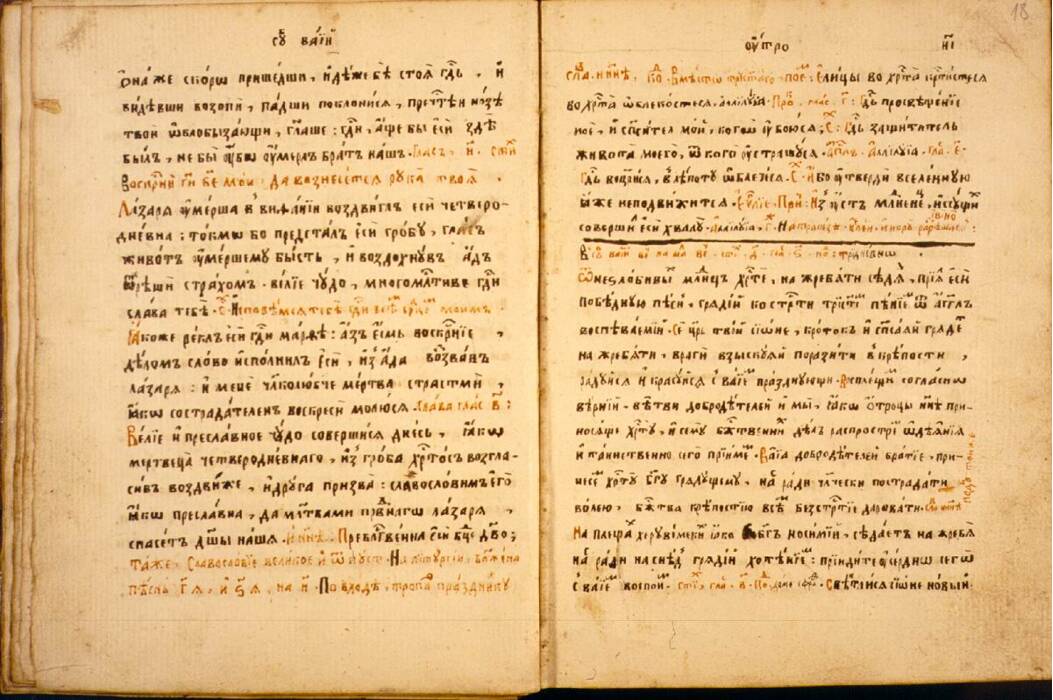 СУ ВАЇЙ
Она же скорѡ пришедши, идѣже бѣ стоѧ гдь, и
видѣвши возопи, падши поклонисѧ, пречтѣи нозѣ
твои ѡблобызающи, глаше: гдй, аще бы еси здѣ
былъ, не бы ѹбѡ ѹмерлъ братъ нашъ. Гласъ, и. стй
Воскрнй гй бе мои да вознесетсѧ рука твоѧ
Лазарѧ ѹмерша в виѳанїи воздвиглъ еси четверо-
дневна: токмѡ бо предсталъ еси гробу, гласъ
животъ ѹмершему бысть, и воздохнувъ адъ
страхомъ. велїе чудо, многомлтиве гдй
слава тебѣ. С. Исповѣмсѧ тебѣ гдй всѣ срцⷨ моимъ
Ꙗкоже реклъ еси гдй марѳѣ: азъ есмь воскрнїе,
дѣломъ слово исполнилъ еси, из ада возвавъ
лазарѧ: и мене члколюбче мертва страстмй,
ꙗкѡ сострадателенъ воскреси молюсѧ. Слава гласъ в:
Велїе и преславное чудо совершисѧ днесь, ꙗкѡ
мертвеца четверодневнаго, из гроба хртосъ возгла-
сивъ воздвиже, и друга призва: славословимъ его
ꙗкѡ преславна, да млтвами првнагѡ лазарѧ,
спасетъ дшы нашѧ. И ннѣ. Преблгвенна еси бце дво;
Таже, Славословїе великое и ѿпустъ. На литургїи, блжена
пѣснь г҃ѧ, и ѕ҃ѧ, на и. По входѣ, тропа праздникꙋ
ѹтро
иі
18
сла. и ннѣ, ко. Вмѣсто трстаго, пое: Елицы во хрта крстистесѧ
во хрта ѡблекостесѧ, аллилуїа. Про, глас. г: Гдь просвѣщенїе
мое, и спситель мой, кого ѹбоюсѧ; С: Гдь защититель
живота моего, ѿ кого ѹстрашусѧ. Апль. Аллилуїа. гла. є.
Гдь воцрисѧ, в лѣпоту ѡблечесѧ. С. Ибо ѹтверди вселенную
ꙗже неподвижитсѧ. Еѵлїе. При: Из ѹстъ млнец, и ссущи
соверши еси хвалу. аллилуїа, г.
ѡ незлобивы млнцъ хрте, на жребѧти сѣдѧ, прїѧ еси
побѣдную пѣснь, грѧдїй ко стрти трстый пѣнїе ѿ агглъ
воспѣваемїй. Се црь твой сїоне, кротокъ и спсаѧй грѧдетъ
на жребѧти, враги взыскуѧй поразити в крѣпости,
радуйсѧ и красуйсѧ с ваїе празднующи. Восплещи согласнѡ
вѣрнїи. вѣтви добродѣтелей и мы, ꙗкѡ отроцы ннѣ при-
носѧще хрту, и сему бжственни дѣлъ распростри ѡдѣѧнїѧ
и таинственно сего прїиме. Ваїа добродѣтелей братїе, при-
несе хрту бгу грѧдущему, на ради члчески пострадати
волею, бжтва крѣпостїю всѣ безстртїе даровати. Сла и ннѣ
На плеща херувимски ꙗко бгъ носимїй, сѣдаетъ на жребѧ
на ради на снѣд грѧдїй хотѣнїе: прїидите усерднѡ сего
с ваїе воспои. стй, гла. в. Свѣтлисѧ сїоне новый